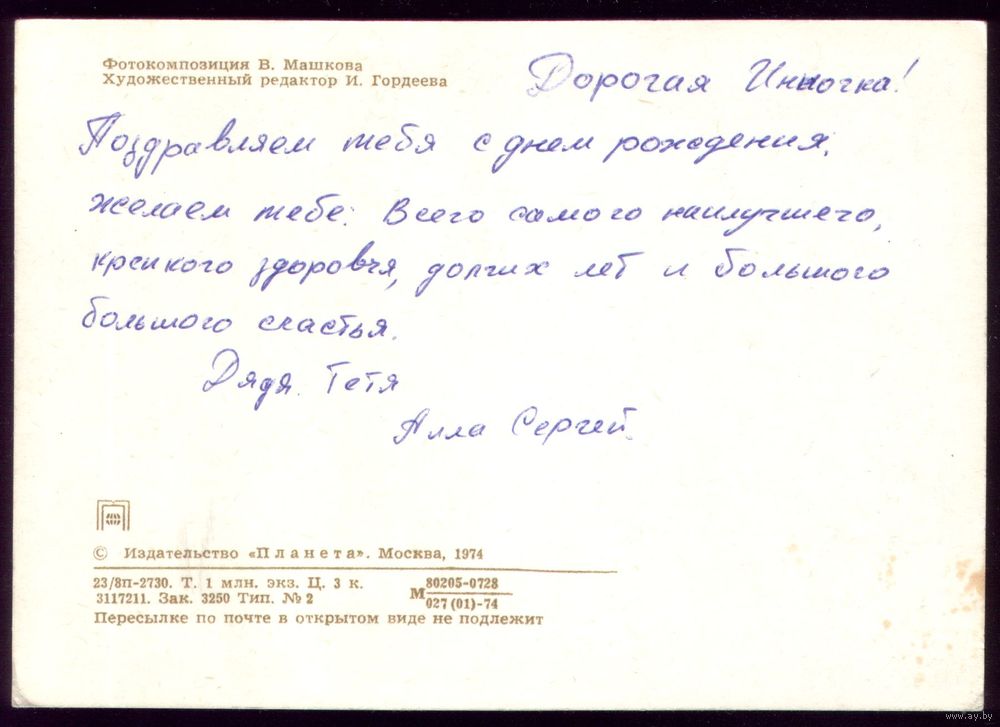 Фотокомпозиция В. Машкова
Художественный редактор И. Гордеева
Дорогая Инночка!
Поздравляем тебя с днем рождения,
желаем тебе: Всего самого наилучшего,
крепкого здоровья, долгих лет и большого
большого счастья.
Дядя. Тетя
Алла Сергей.
© Издательство «Планета». Москва, 1974
23/8п-2730. Т. 1 млн. экз. Ц. 3 к.
3117211. Зак. 3250 Тип. № 2
М 80205-0728
027 (01)-74
Пересылке по почте в открытом виде не подлежит
www.ay.by